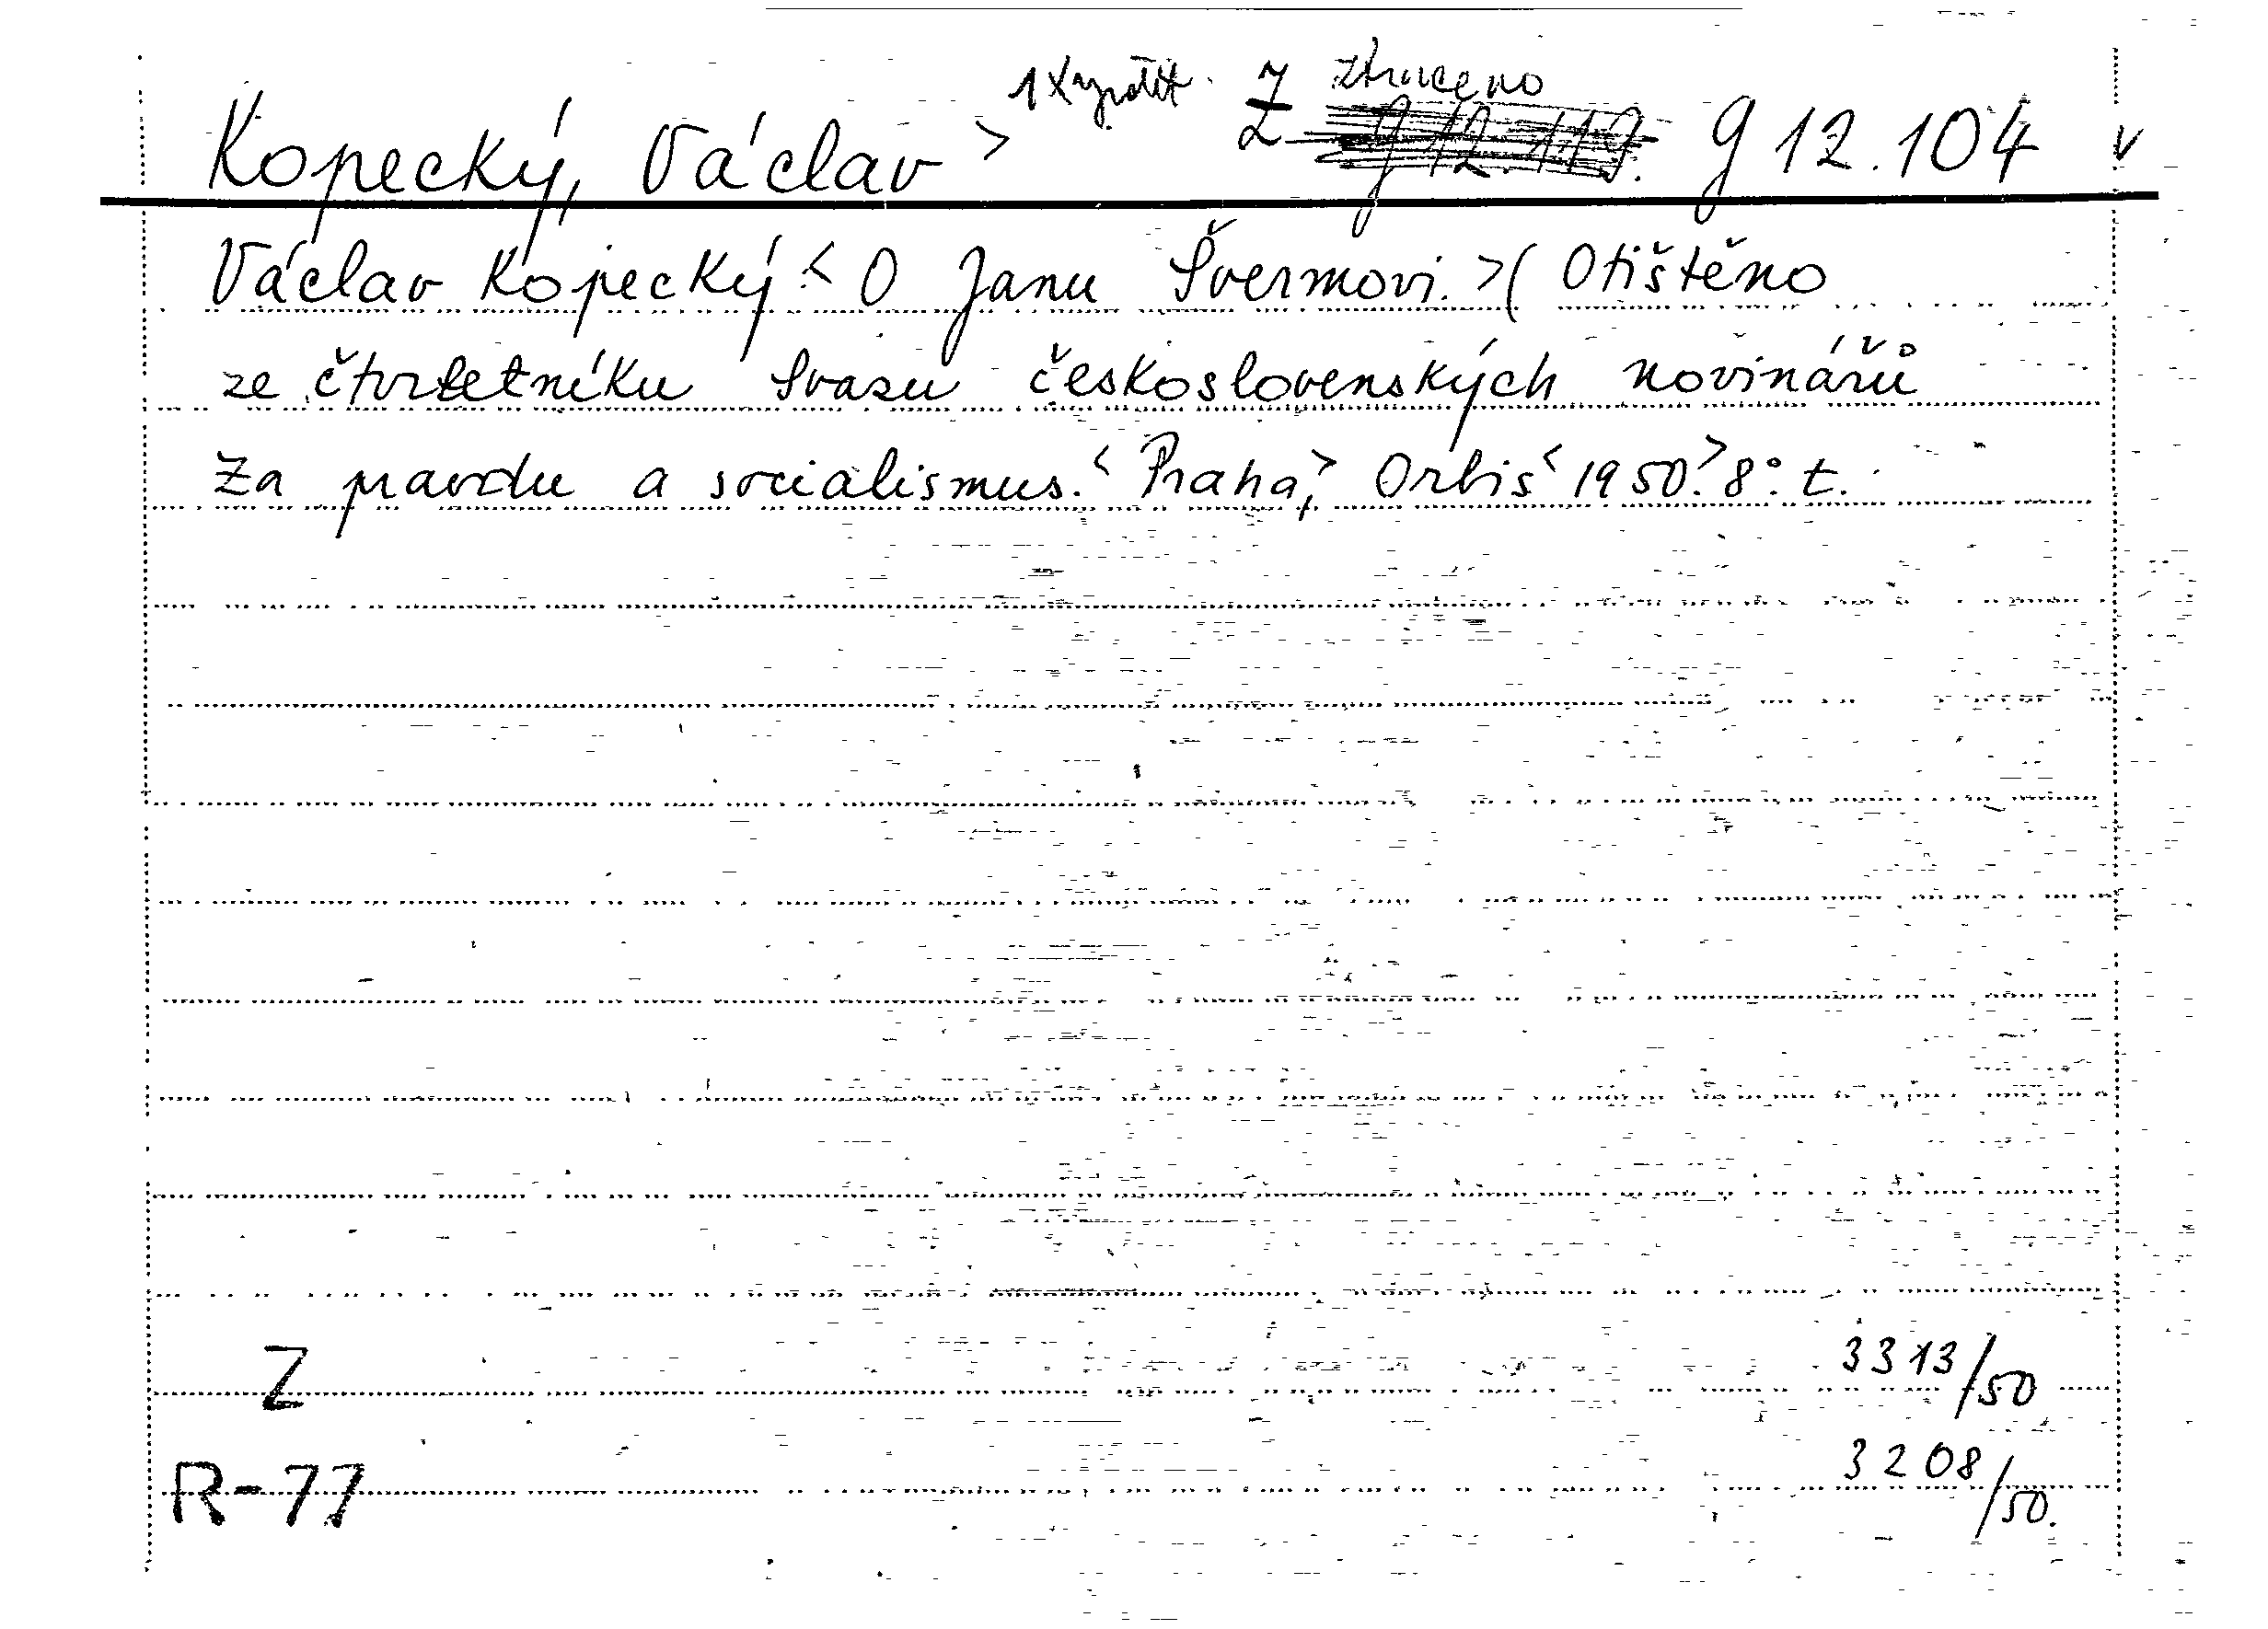 1x Z ztraceno
Kopecký, Václav > Z g 12.119. g 12.104 v
Václav Kopecký: < O Janu Švermovi. > ( Otištěno
ze čtvrtletníku Svazu československých novinářů
Za pravdu a socialismus. < Praha, > Orbis < 1950. > 8°. t.
Z 3313/50
R-77 3208/50.